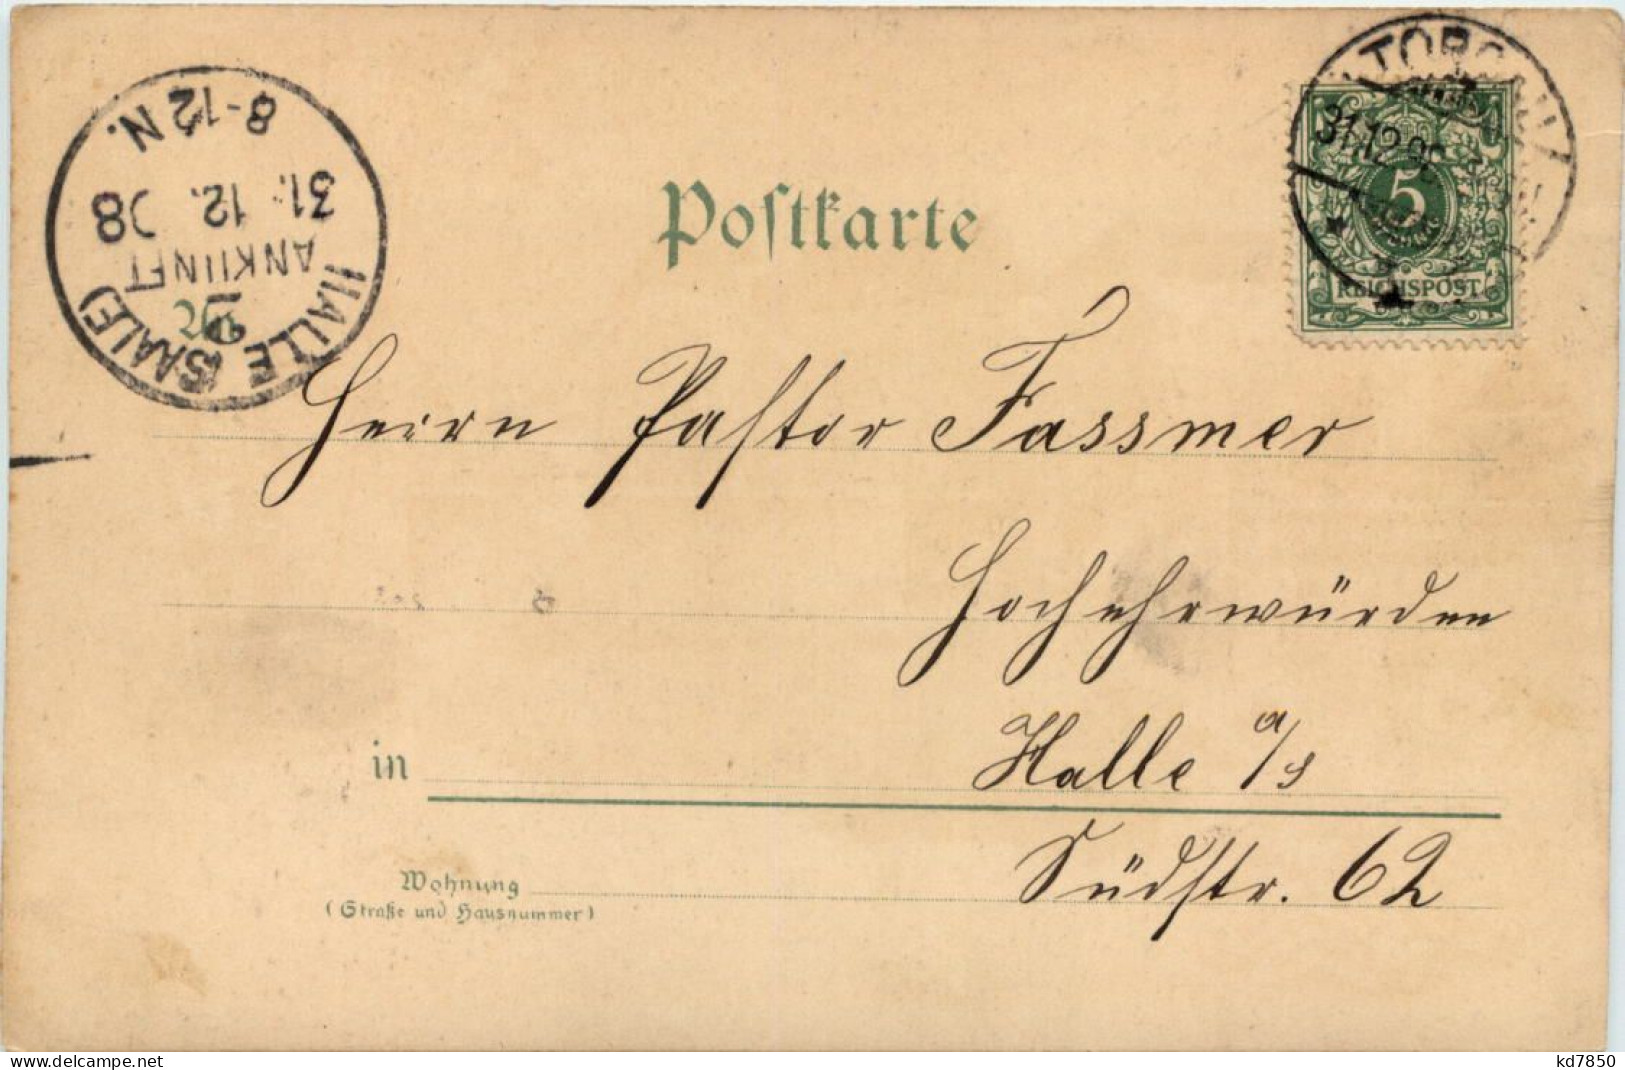 TORGAU
31.12.98
5
REICHSPOST
HALLE (SAALE)
ANKUNFT
31. 12. 98
8-12 N.
2
Postkarte
An
Herrn Pastor Fassmer
Hochehrwürden
in Halle a/S
Wohnung Südstr. 62
(Straße und Hausnummer)
www.delcampe.net
kd7850